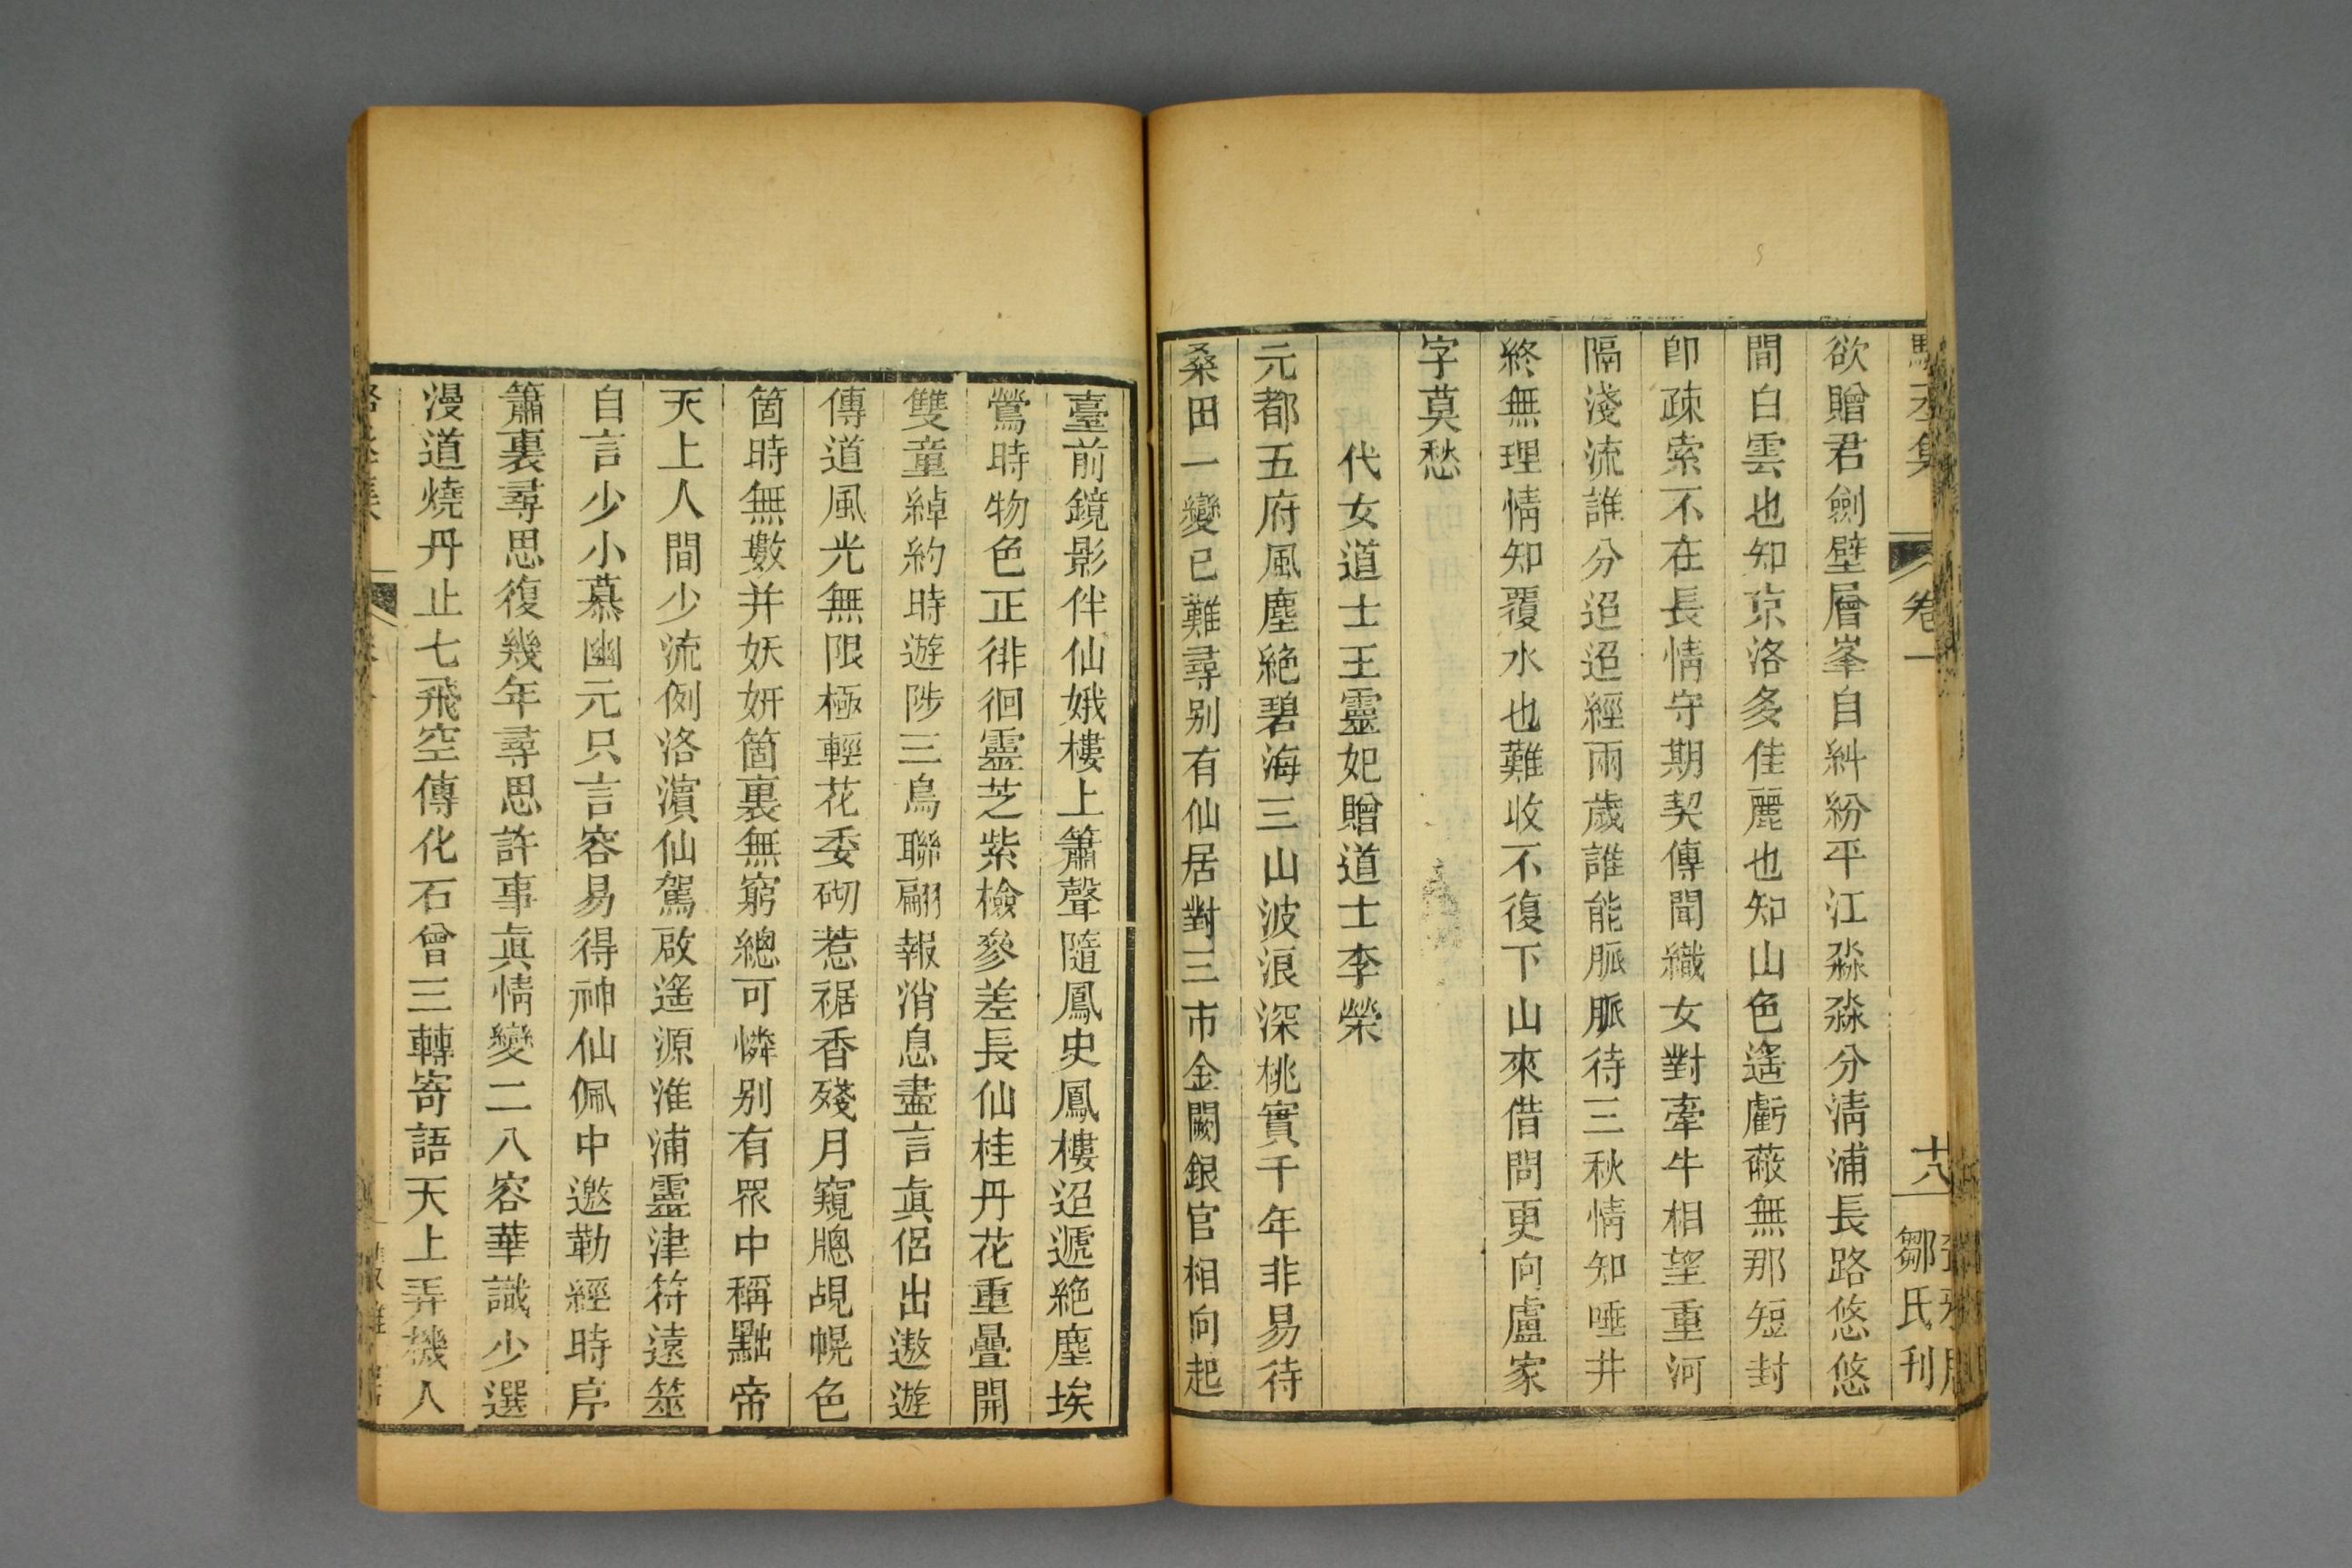 卷一
十八
鄒氏刊
欲贈君劍壁層峯自糾紛平江淼淼分淸浦長路悠悠
間白雲也知京洛多佳麗也知山色遙虧蔽無那短封
卽疎索不在長情守期契傳聞織女對牽牛相望重河
隔淺流誰分迢迢經雨歲誰能脈脈待三秋情知唾井
終無理情知覆水也難收不復下山來借問更向盧家
字莫愁
代女道士王靈妃贈道士李榮
元都五府風塵絶碧海三山波浪深桃實千年非易待
桑田一變已難尋別有仙居對三市金闕銀宮相向起
臺前鏡影伴仙娥樓上簫聲隨鳳史鳳樓迢遞絶塵埃
鶯時物色正徘徊靈芝紫檢參差長仙桂丹花重疊開
雙童綽約時遊陟三鳥聯翩報消息盡言眞侶出遨遊
傳道風光無限極輕花委砌惹裾香殘月窺牕覘幌色
箇時無數并妖妍箇裏無窮總可憐別有眾中稱黜帝
天上人間少流例洛濱仙駕啟遙源淮浦靈津符遠筮
自言少小慕幽元只言容易得神仙佩中邀勒經時序
簫裏尋思復幾年尋思許事眞情變二八容華識少選
漫道燒丹止七飛空傳化石曾三轉寄語天上弄機人